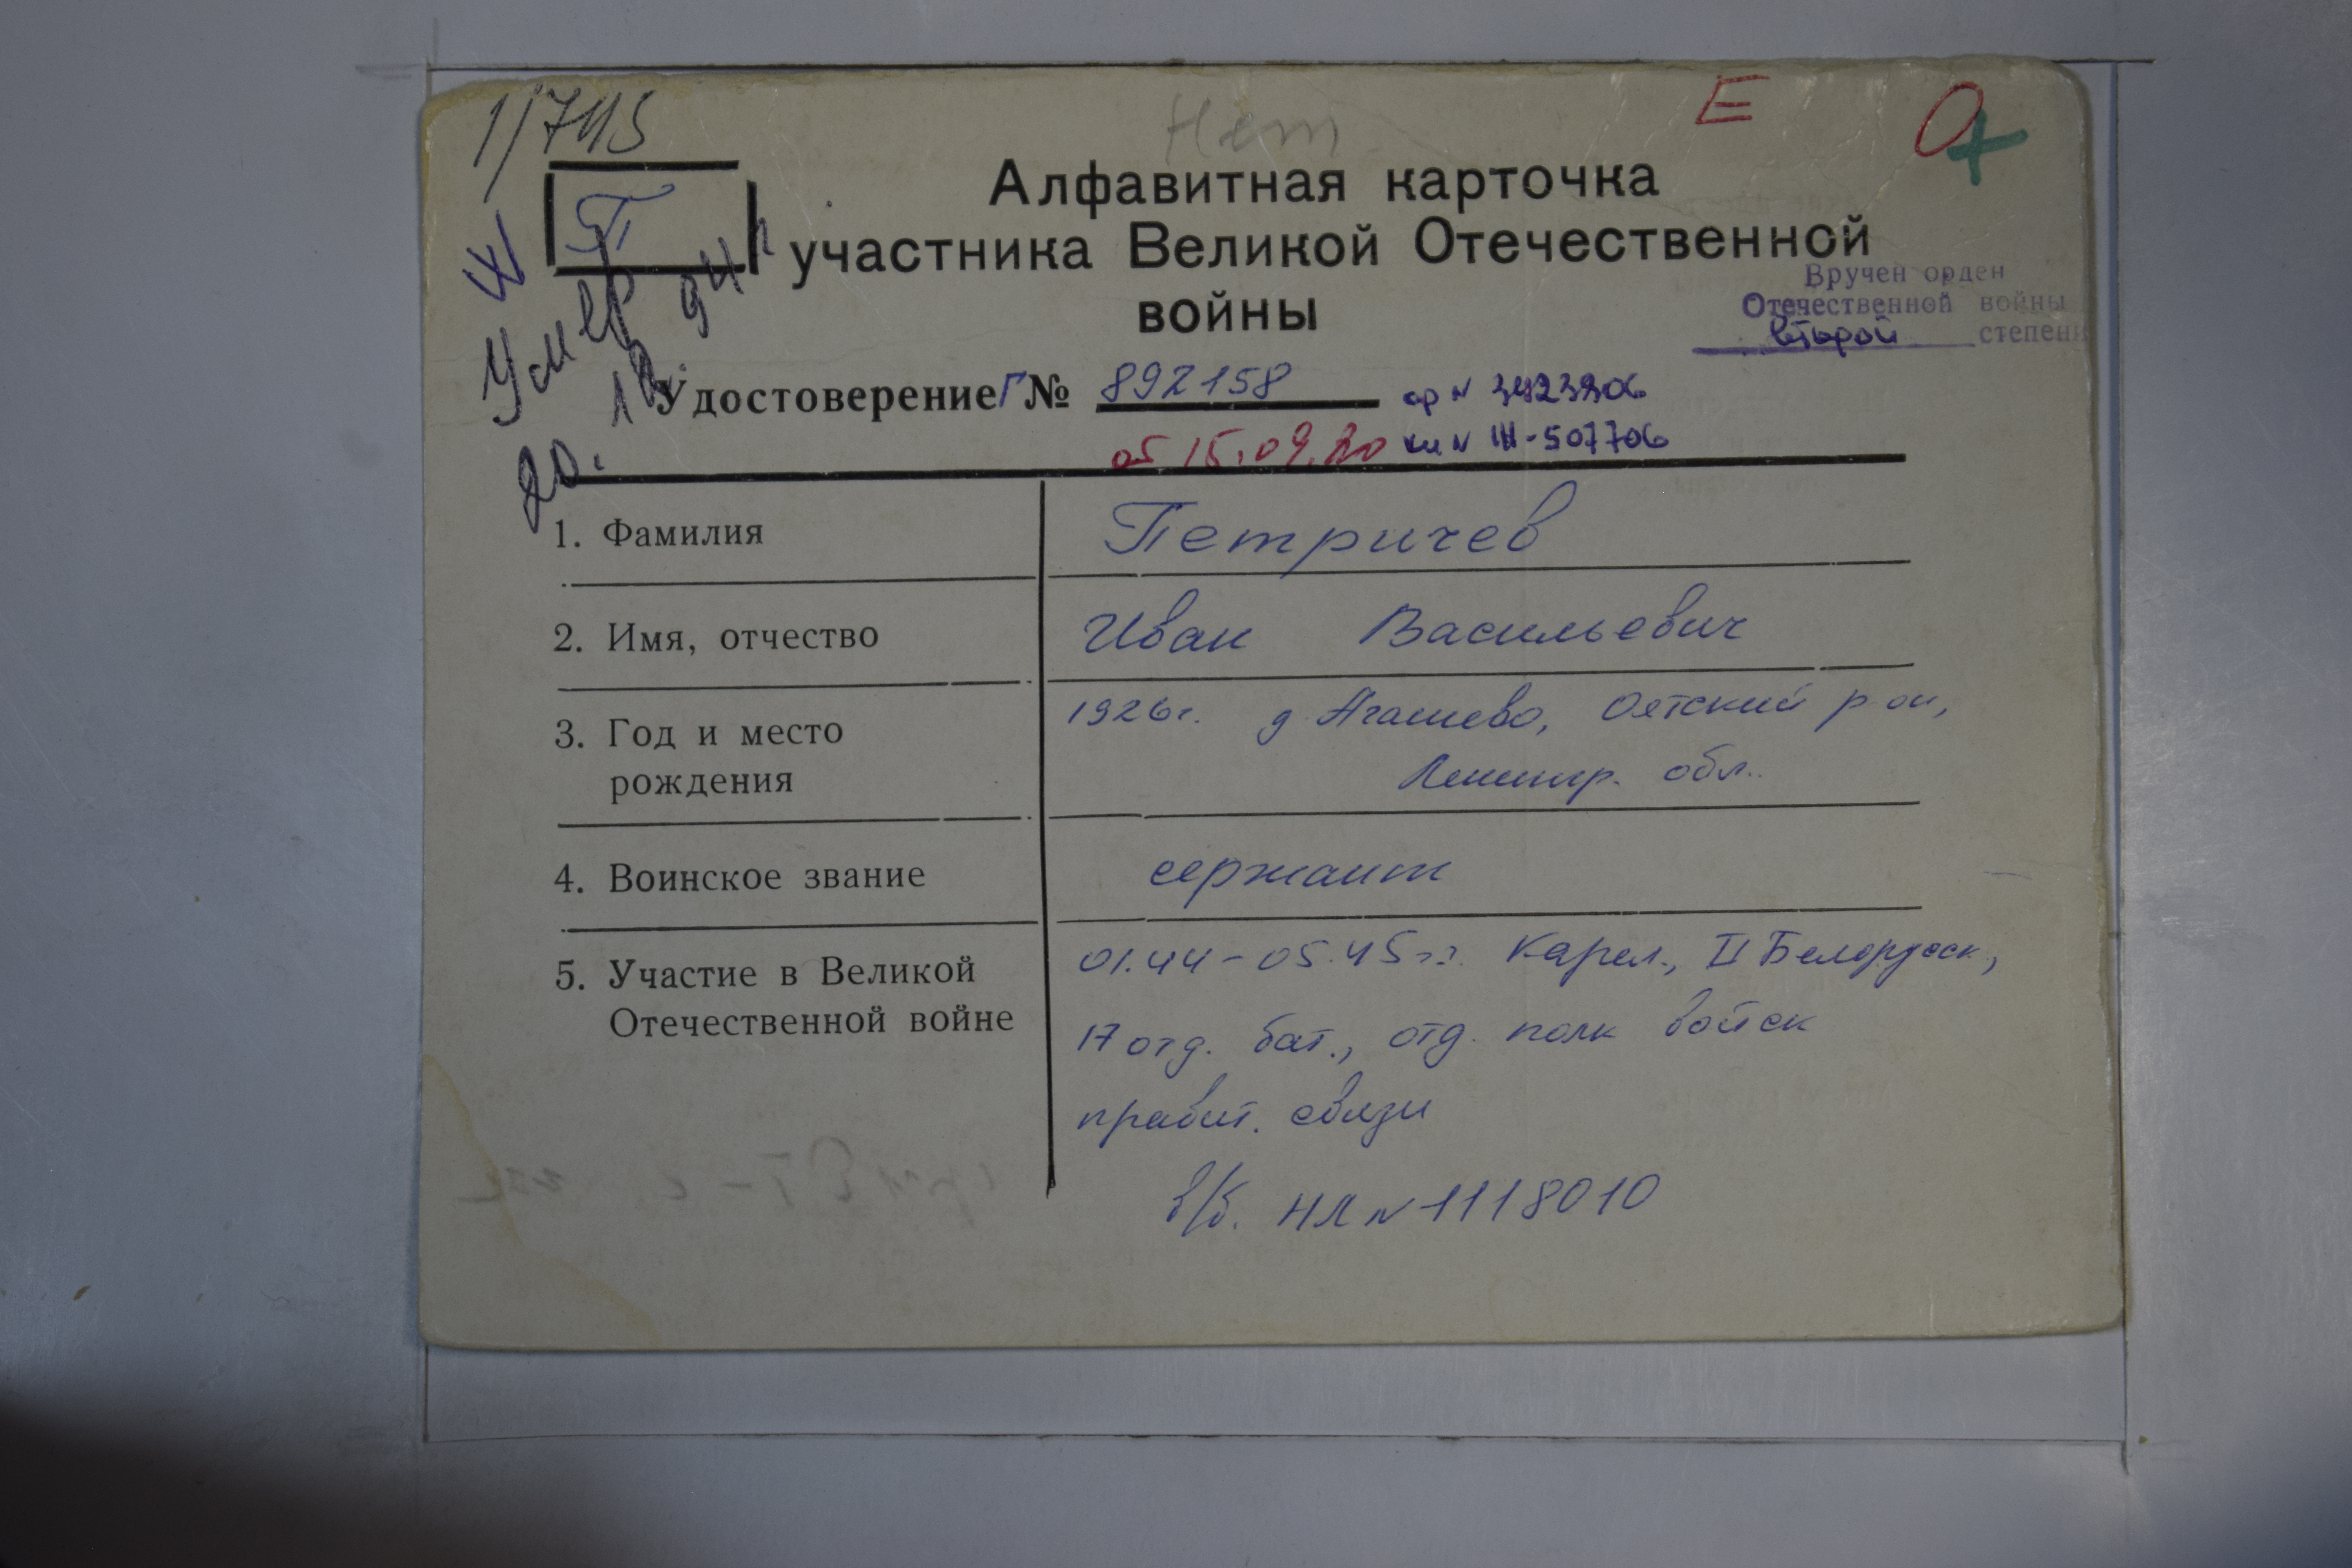 1/745
Нет
Е
О
П
Алфавитная карточка
участника Великой Отечественной
войны
Вручен орден
Отечественной войны
второй степени
Умер
20. 12. 94 г
Удостоверение Г № 892158
ор № 3423306
от 15.09.80 кн № Ш-507706
1. Фамилия
Петричев
2. Имя, отчество
Иван Васильевич
3. Год и место
рождения
1926г. д. Агашево, Оятский р-он,
Ленингр. обл.
4. Воинское звание
сержант
5. Участие в Великой
Отечественной войне
01.44-05.45 г.г. Карел., II Белорусск.,
17 отд. бат., отд. полк войск
правит. связи
в/б. НЛ № 1118010